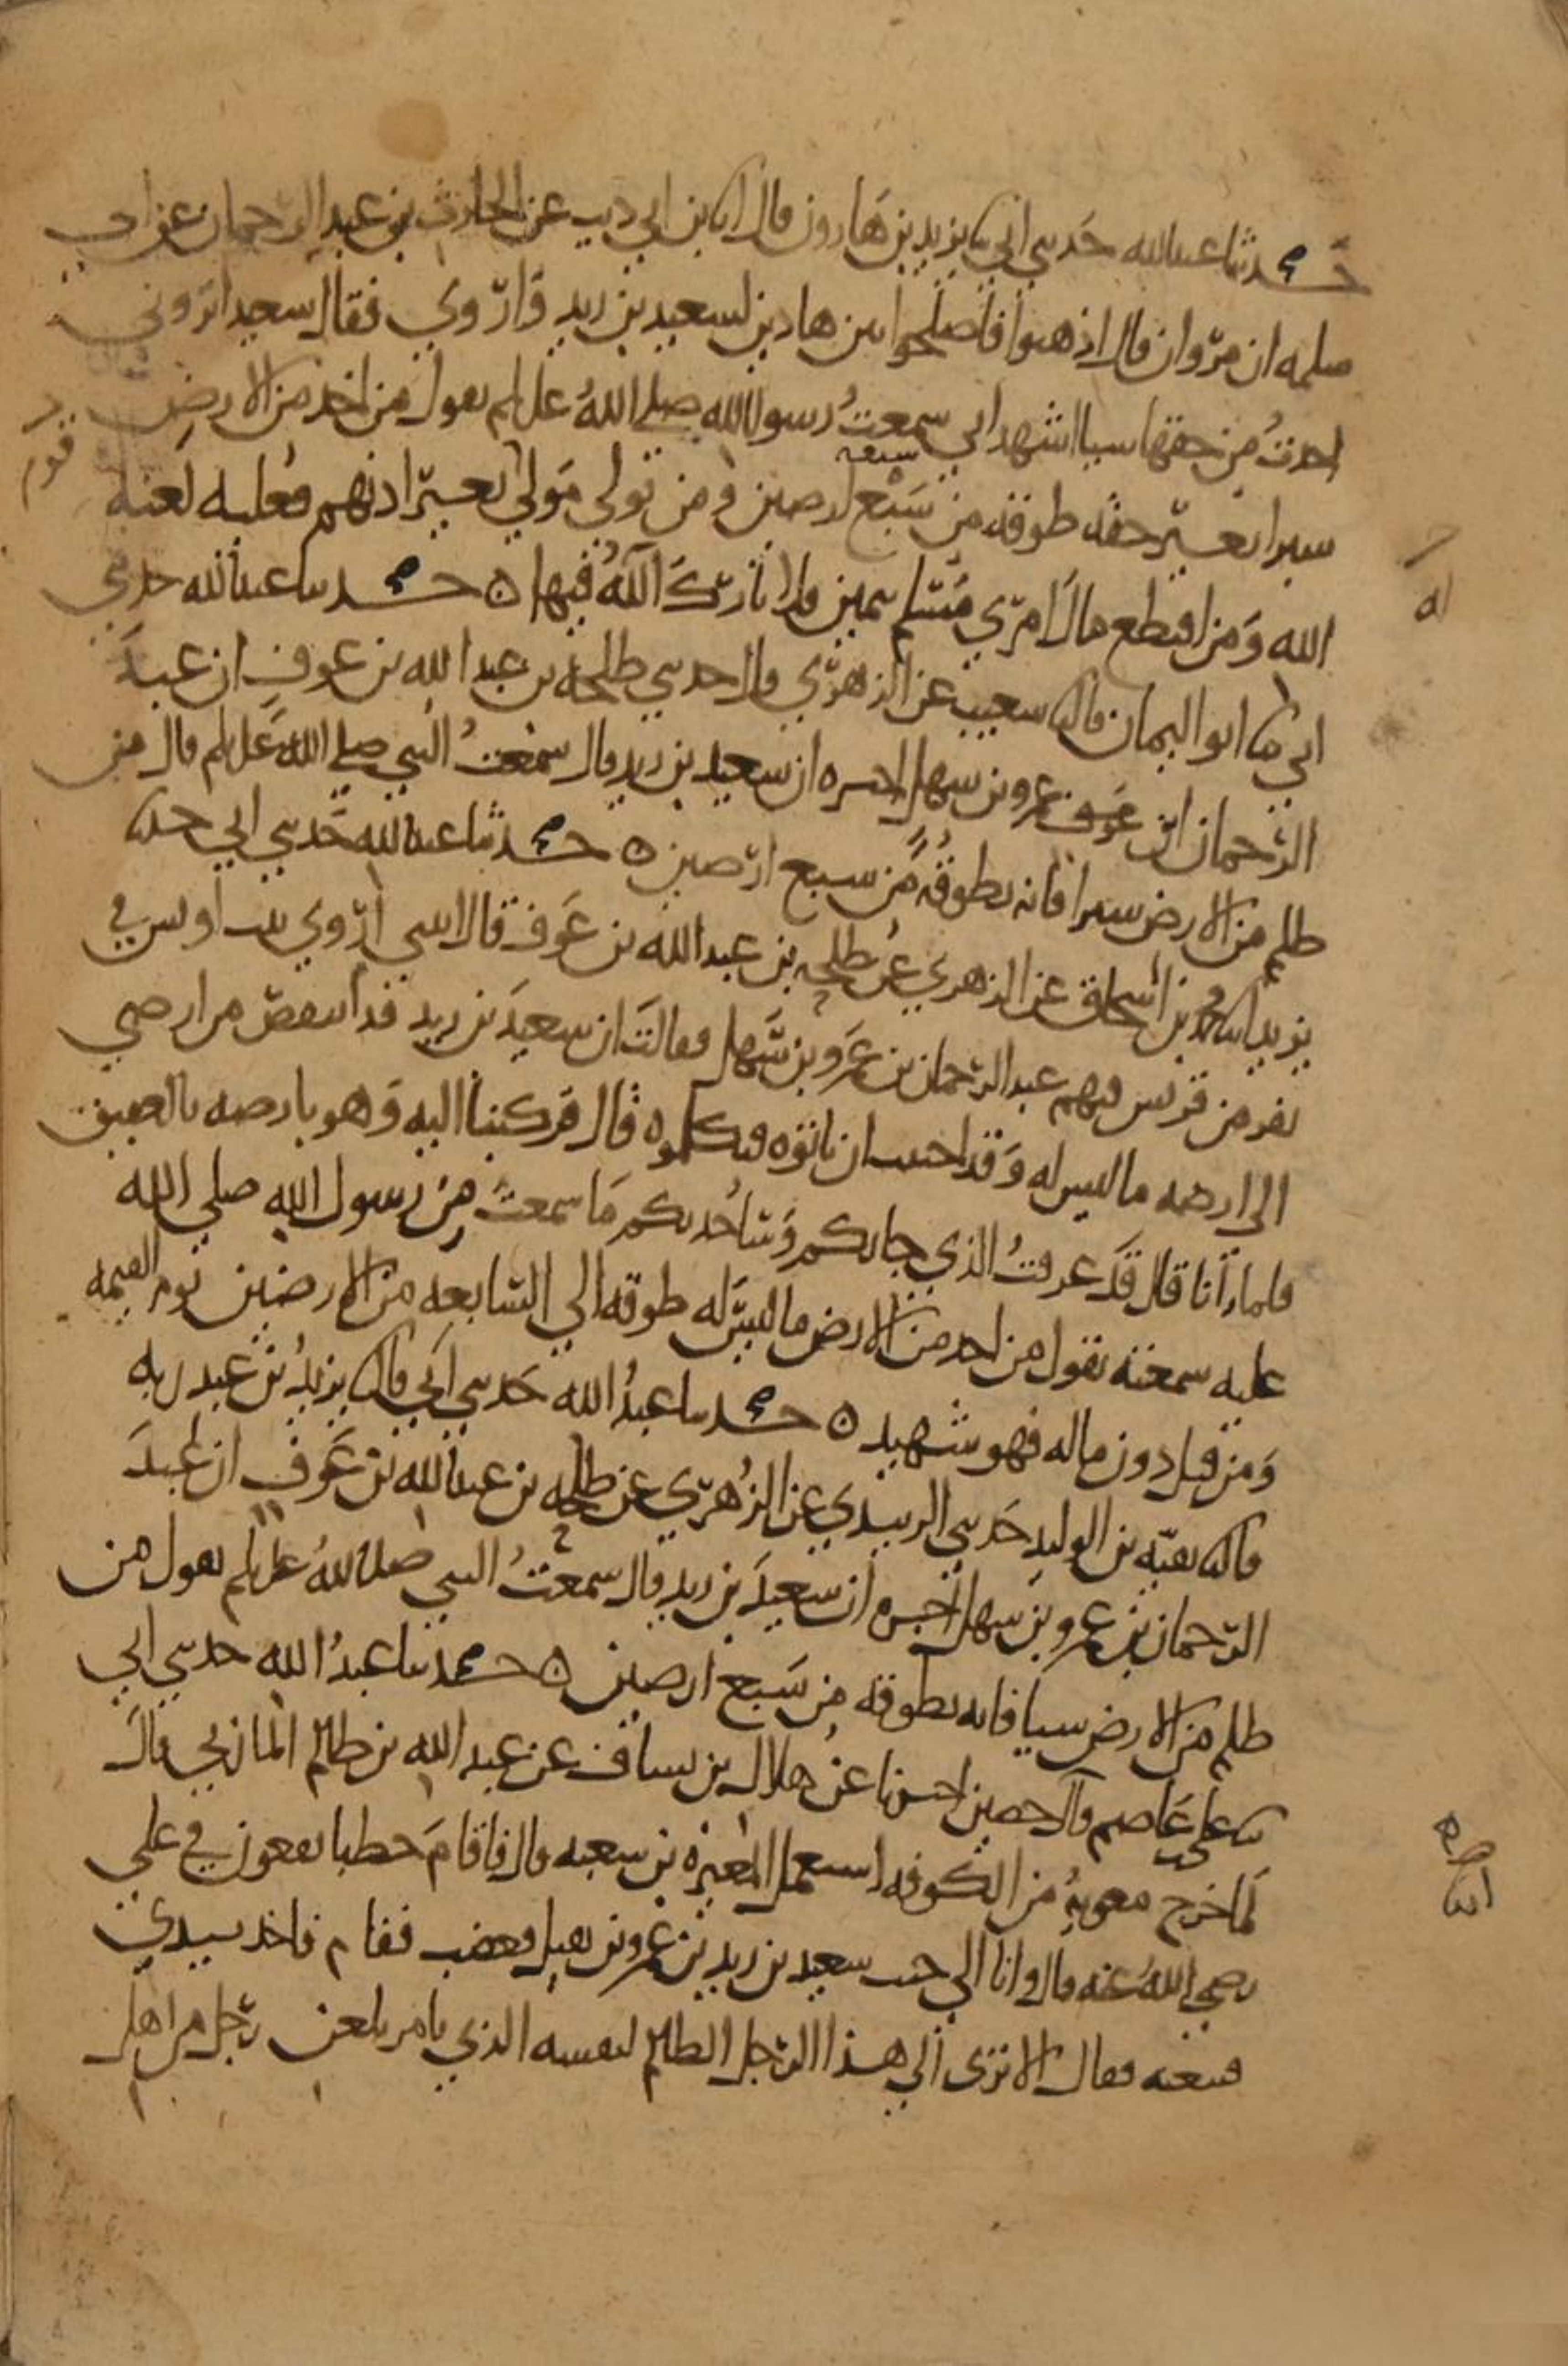 حدثنا عبد الله حدثني ابي ثنا يزيد بن هارون قال انا بن ابي ذيب عن الحارث بن عبد الرحمان عن ابي
سلمه ان مروان قال اذهبوا فاصلحوا بين هاذين لسعيد بن زيد واروي فقال سعيد اتروني
اخذت من حقها شيا اشهد اني سمعت رسول الله صلى الله عليه وسلم يقول من اخذ من الارض
شبرا بغير حقه طوقه من سبع ارضين ومن تولي مولي بغير اذنهم فعليه لعنه
سبعه
قوم
الله ومن اقتطع مال امري مسلم بيمين فلا بارك الله فيها ه حدثنا عبد الله حدثني
له
ابي ثنا ابو اليمان قال انا شعيب عن الزهري قال حدثني طلحه بن عبد الله بن عوف ان عبد
الرحمان بن عمرو بن سهل اخبره ان سعيد بن زيد قال سمعت النبي صلى الله عليه وسلم قال من
ظلم من الارض شبرا فانه يطوقه من سبع ارضين ه حدثنا عبد الله حدثني ابي حدثنا
يزيد انا محمد بن اسحاق عن الزهري عن طلحه بن عبد الله بن عوف قال اتتني اروي بنت اويس في
نفر من قريش فيهم عبد الرحمان بن عمرو بن سهل فقالت ان سعيد بن زيد قد انتقص من ارضي
الى ارضه ما ليس له وقد احببت ان تاتوه فتكلموه قال فركبنا اليه وهو بارضه بالعقيق
فلما رآنا قال قد عرفت الذي جابكم وساحدثكم ما سمعت من رسول الله صلي الله
عليه سمعته يقول من اخذ من الارض ما ليس له طوقه الي السابعه من الارضين يوم القيمه
ومن قتل دون ماله فهو شهيد ه حدثنا عبد الله حدثني ابي قال ثنا يزيد بن عبد ربه
قال ثنا بقيه بن الوليد حدثني الزبيدي عن الزهري عن طلحه بن عبد الله بن عوف ان عبد
الرحمان بن عمرو بن سهل اخبره ان سعيد بن زيد قال سمعت النبي صلى الله عليه وسلم يقول من
ظلم من الارض شيا فانه يطوقه من سبع ارضين ه حدثنا عبد الله حدثني ابي
ثنا علي عاصم قال حصين اخبرنا عن هلال بن يساف عن عبد الله بن ظالم المازني قال
لما خرج معويه من الكوفه استعمل المغيره بن شعبه قال فاقام خطبا يقعون في علي
رضي الله عنه قال وانا الي جنب سعيد بن زيد بن عمرو بن نفيل فغضب فقام فاخذ بيدي
فتبعته فقال الا ترى الي هذا الرجل الظالم لنفسه الذي يامر بلعن رجل من اهل